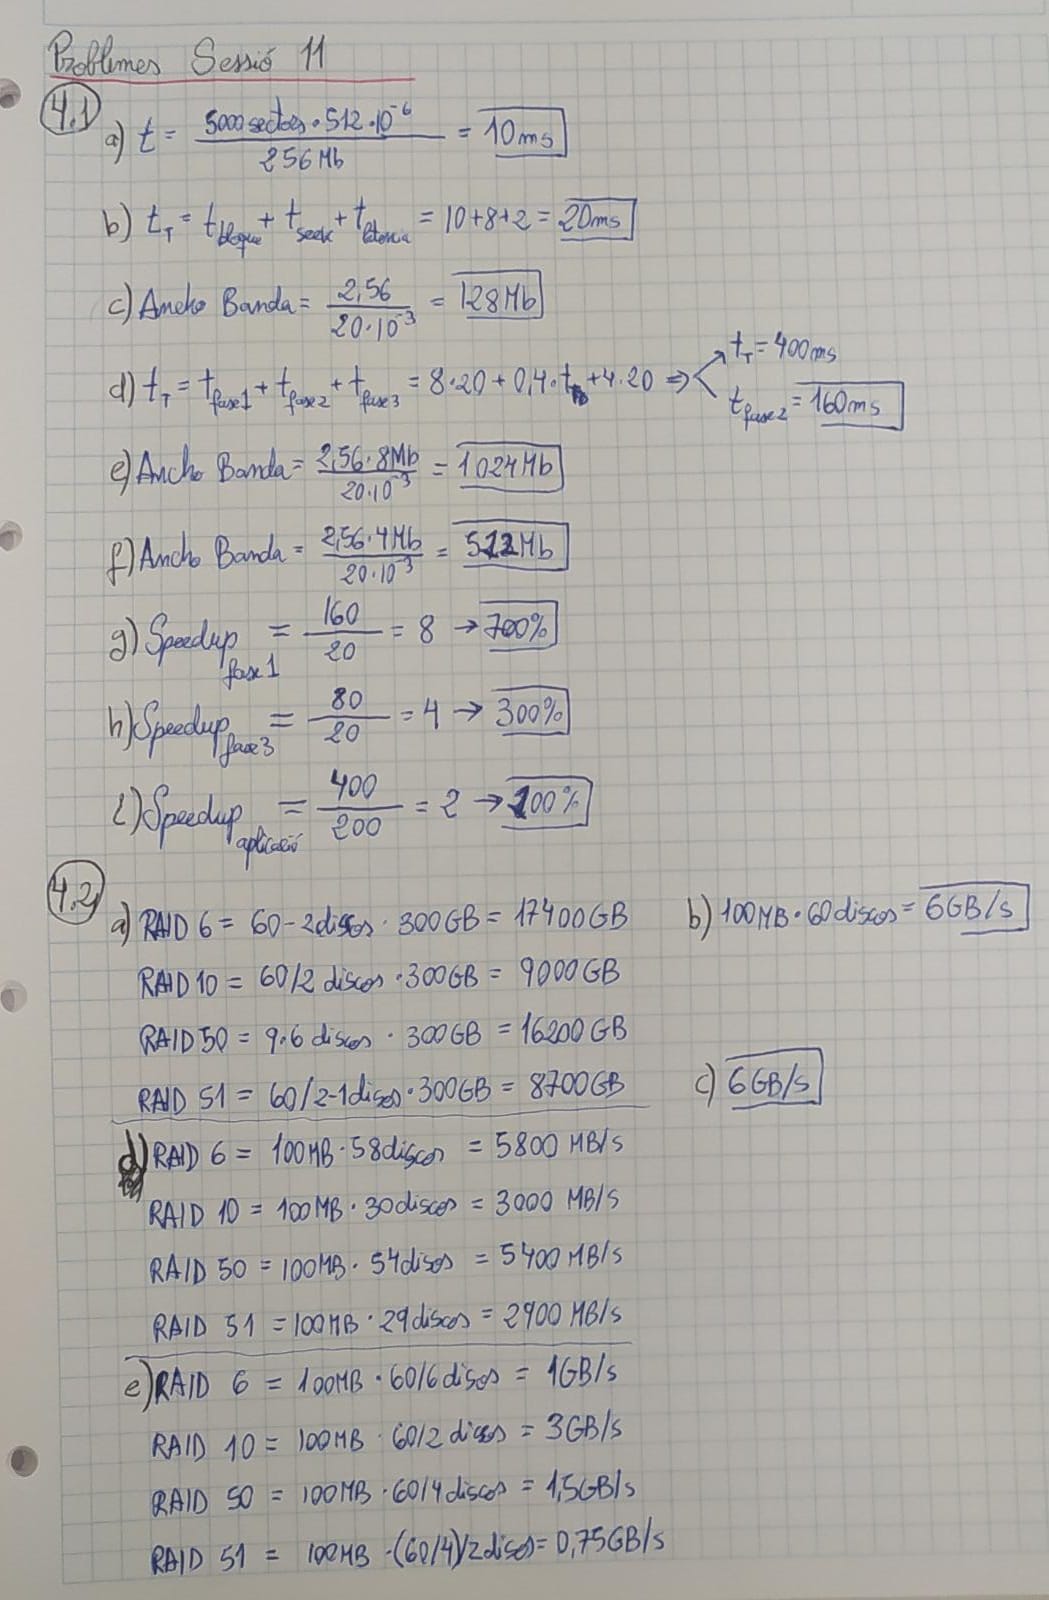 Problemes Sessió 11
4.1
a) t = 5000 sectores · 512 · 10^-6 / 256 Mb = 10 ms
b) t_T = t_bloque + t_seek + t_latencia = 10 + 8 + 2 = 20 ms
c) Ancho Banda = 2,56 / 20·10^-3 = 128 Mb
d) t_T = t_fase1 + t_fase2 + t_fase3 = 8·20 + 0,4·t + 4·20 ⇒ t_T = 400 ms
t_fase2 = 160 ms
e) Ancho Banda = 2,56 · 8 Mb / 20·10^-3 = 1024 Mb
f) Ancho Banda = 2,56 · 4 Mb / 20·10^-3 = 512 Mb
g) Speedup fase 1 = 160 / 20 = 8 → 700%
h) Speedup fase 3 = 80 / 20 = 4 → 300%
i) Speedup aplicació = 400 / 200 = 2 → 100%
4.2
a) RAID 6 = 60 - 2 discos · 300GB = 17400GB
b) 100MB · 60 discos = 6GB/s
RAID 10 = 60/2 discos · 300GB = 9000GB
RAID 50 = 9·6 discos · 300GB = 16200GB
RAID 51 = 60/2-1 discos · 300GB = 8700GB
c) 6GB/s
d) RAID 6 = 100MB · 58 discos = 5800 MB/s
RAID 10 = 100MB · 30 discos = 3000 MB/s
RAID 50 = 100MB · 54 discos = 5400 MB/s
RAID 51 = 100MB · 29 discos = 2900 MB/s
e) RAID 6 = 100MB · 60/6 discos = 1GB/s
RAID 10 = 100MB · 60/2 discos = 3GB/s
RAID 50 = 100MB · 60/4 discos = 1,5GB/s
RAID 51 = 100MB · (60/4)/2 discos = 0,75GB/s